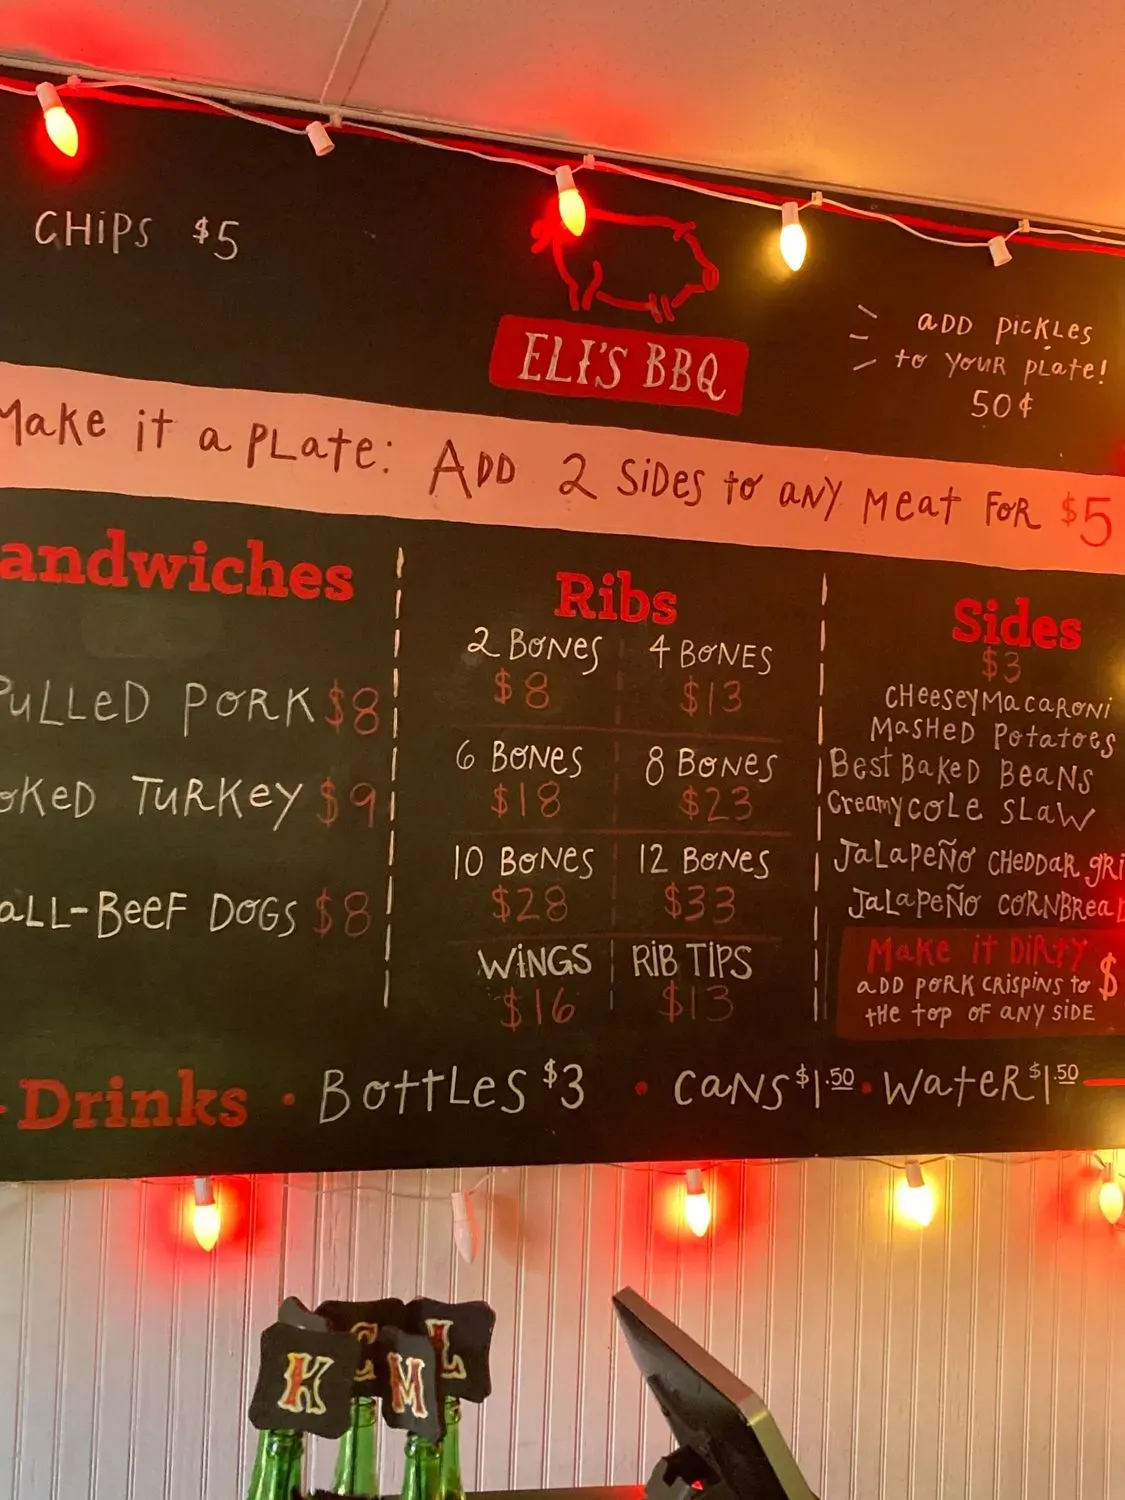 CHiPS $5
ELI'S BBQ
ADD PiCKLES
to YOUR PLate!
50¢
Make it a PLATE: ADD 2 SiDES to ANY MEAT FOR $5
andwiches
PULLED PORK $8
oKED TURKEY $9
aLL-BEEF DOGS $8
Ribs
2 BONES 4 BONES
$8 $13
6 BONES 8 BONES
$18 $23
10 BONES 12 BONES
$28 $33
WiNGS RIB TIPS
$16 $13
Sides
$3
CHEESEY MACARONi
MASHED POTATOES
BEST BAKED BEANS
Creamy COLE SLAW
JALAPEÑO CHEDDAR gRi
JALAPEÑO CORNBREAD
Make it DiRTY $
ADD PORK CRISPINS to
tHE top OF ANY SIDE
Drinks • BOTTLES $3 • CANS $1.50 • WATER $1.50
K
M
L